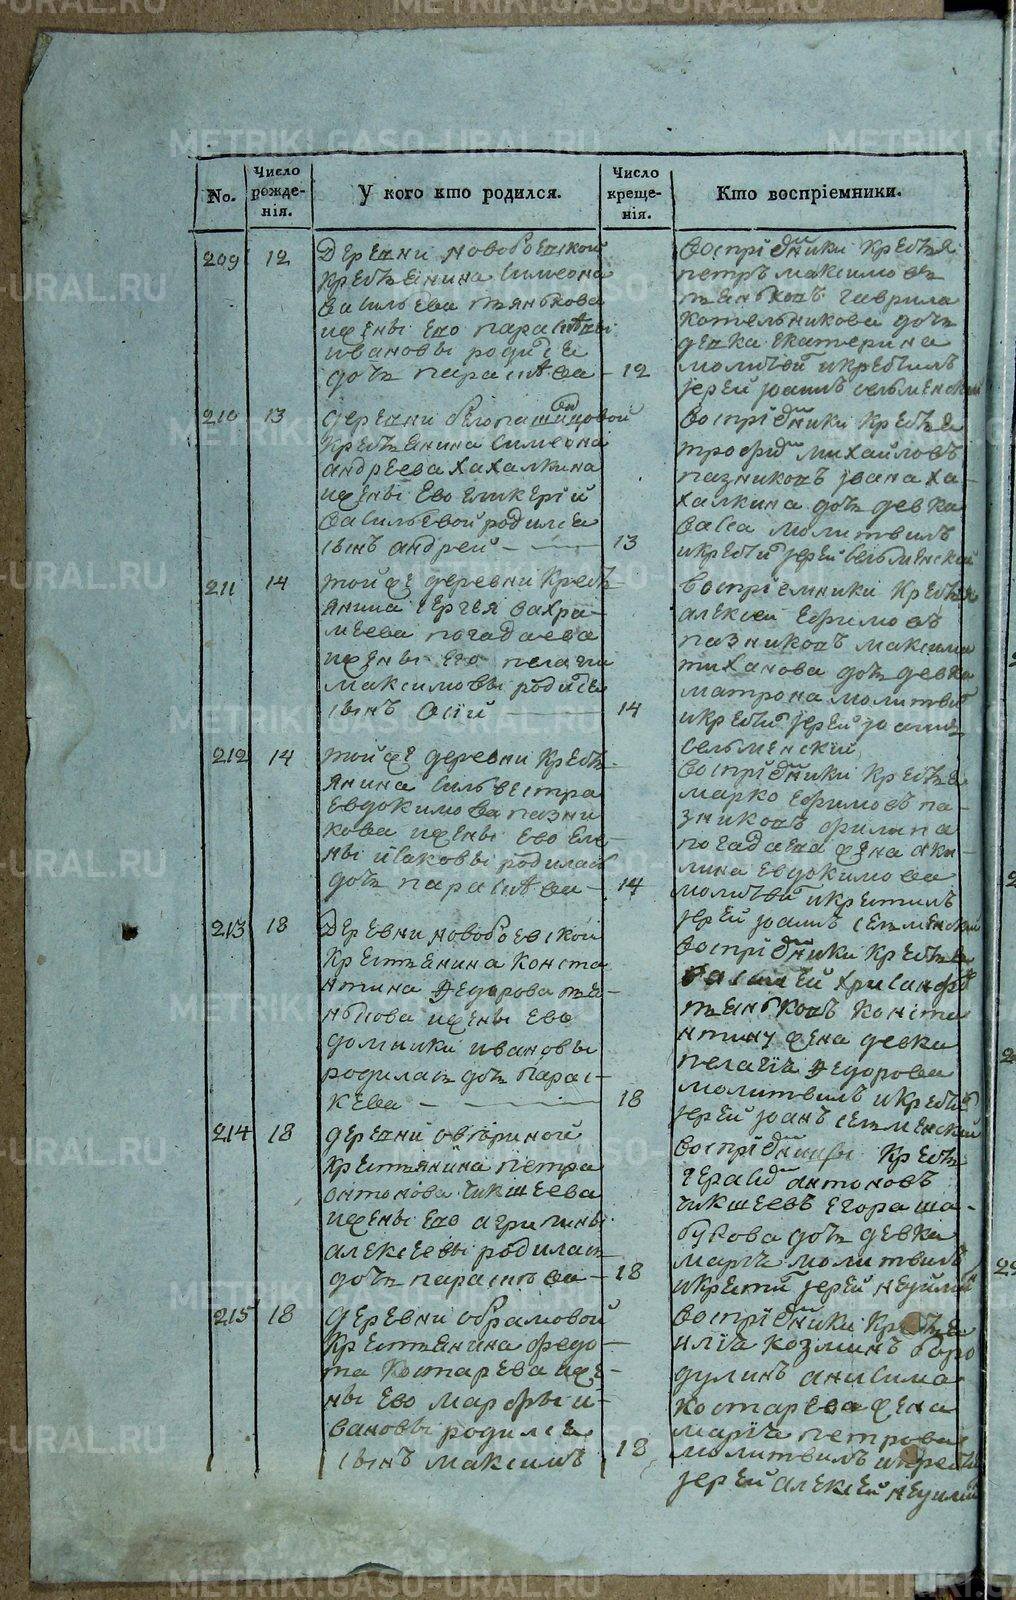 No.
Число рожде-нія.
У кого кто родился.
Число креще-нія.
Кто воспріемники.
209 12
деревни новобоевской
крестьянина Симеона
васильева тянькова
ижены ево параскевы
ивановы родися
дочь параскева 12
воспріемники крестья
петръ максимовъ
тяньковъ гаврила
котельникова дочь
девка екатерина
молитвил икрестилъ
іерей іоаннъ сельменскій
210 13
деревни белопашинцовой
крестьянина Симеона
андреева хахалкина
ижены ево гликеріи
васильевой родился
сынъ андрей 13
воспріемники крестья
трофим михайловъ
пазниковъ івана ха-
халкина дочь девка
васса молитвилъ
икрести іерей сельменскій
211 14
тойже деревни крестъ
янина сергея вахра-
меева погадаева
ижены ево пелагии
максимовы родися
сынъ осій 14
воспріемники крестья
алексеи ефимовъ
пазниковъ максима
тиханова дочь девка
матрона молитвил
икрестил іерей іоаннъ
сельменскій
212 14
тойже деревни кресть
янина Сильвестра
евдокимова пазни
кова ижены ево еле-
ны исаковы родилась
дочь параскева 14
воспріемники крестья
марко ефимовъ па-
зниковъ филипа
погадаева жена аки-
лина евдокимова
молитвил икрестилъ
іерей іоаннъ селменскій
213 18
деревни новобоевской
крестьянина конста
нтина Федорова тя-
нькова ижены ево
домники ивановы
родилась дочь парас-
кева 18
воспріемники крестья
василей хрисанфов
тяньковъ конста
нтину жена девка
пелагія Федорова
молитвилъ икрестил
іерей іоанъ селменскій
214 18
деревни овчиной
крестьянина петра
антонова чикшеева
ижены ево агрипины
алексеевы родилась
дочь параскева 18
кресть
герасим антоновъ
чикшеевъ егора ша-
бурова дочь девка
марія молитвилъ
икрестил іерей
215 18
деревни абрамовой
крестьянина федо-
та костарева иже-
ны ево марфы и-
вановы родился
сынъ максимъ 18
воспріемники крестья
илія козминъ боро
дулинъ анисима
костарева жена
марія петрова
молитвилъ икрести
іерей алексей
METRIKI.GASO-URAL.RU